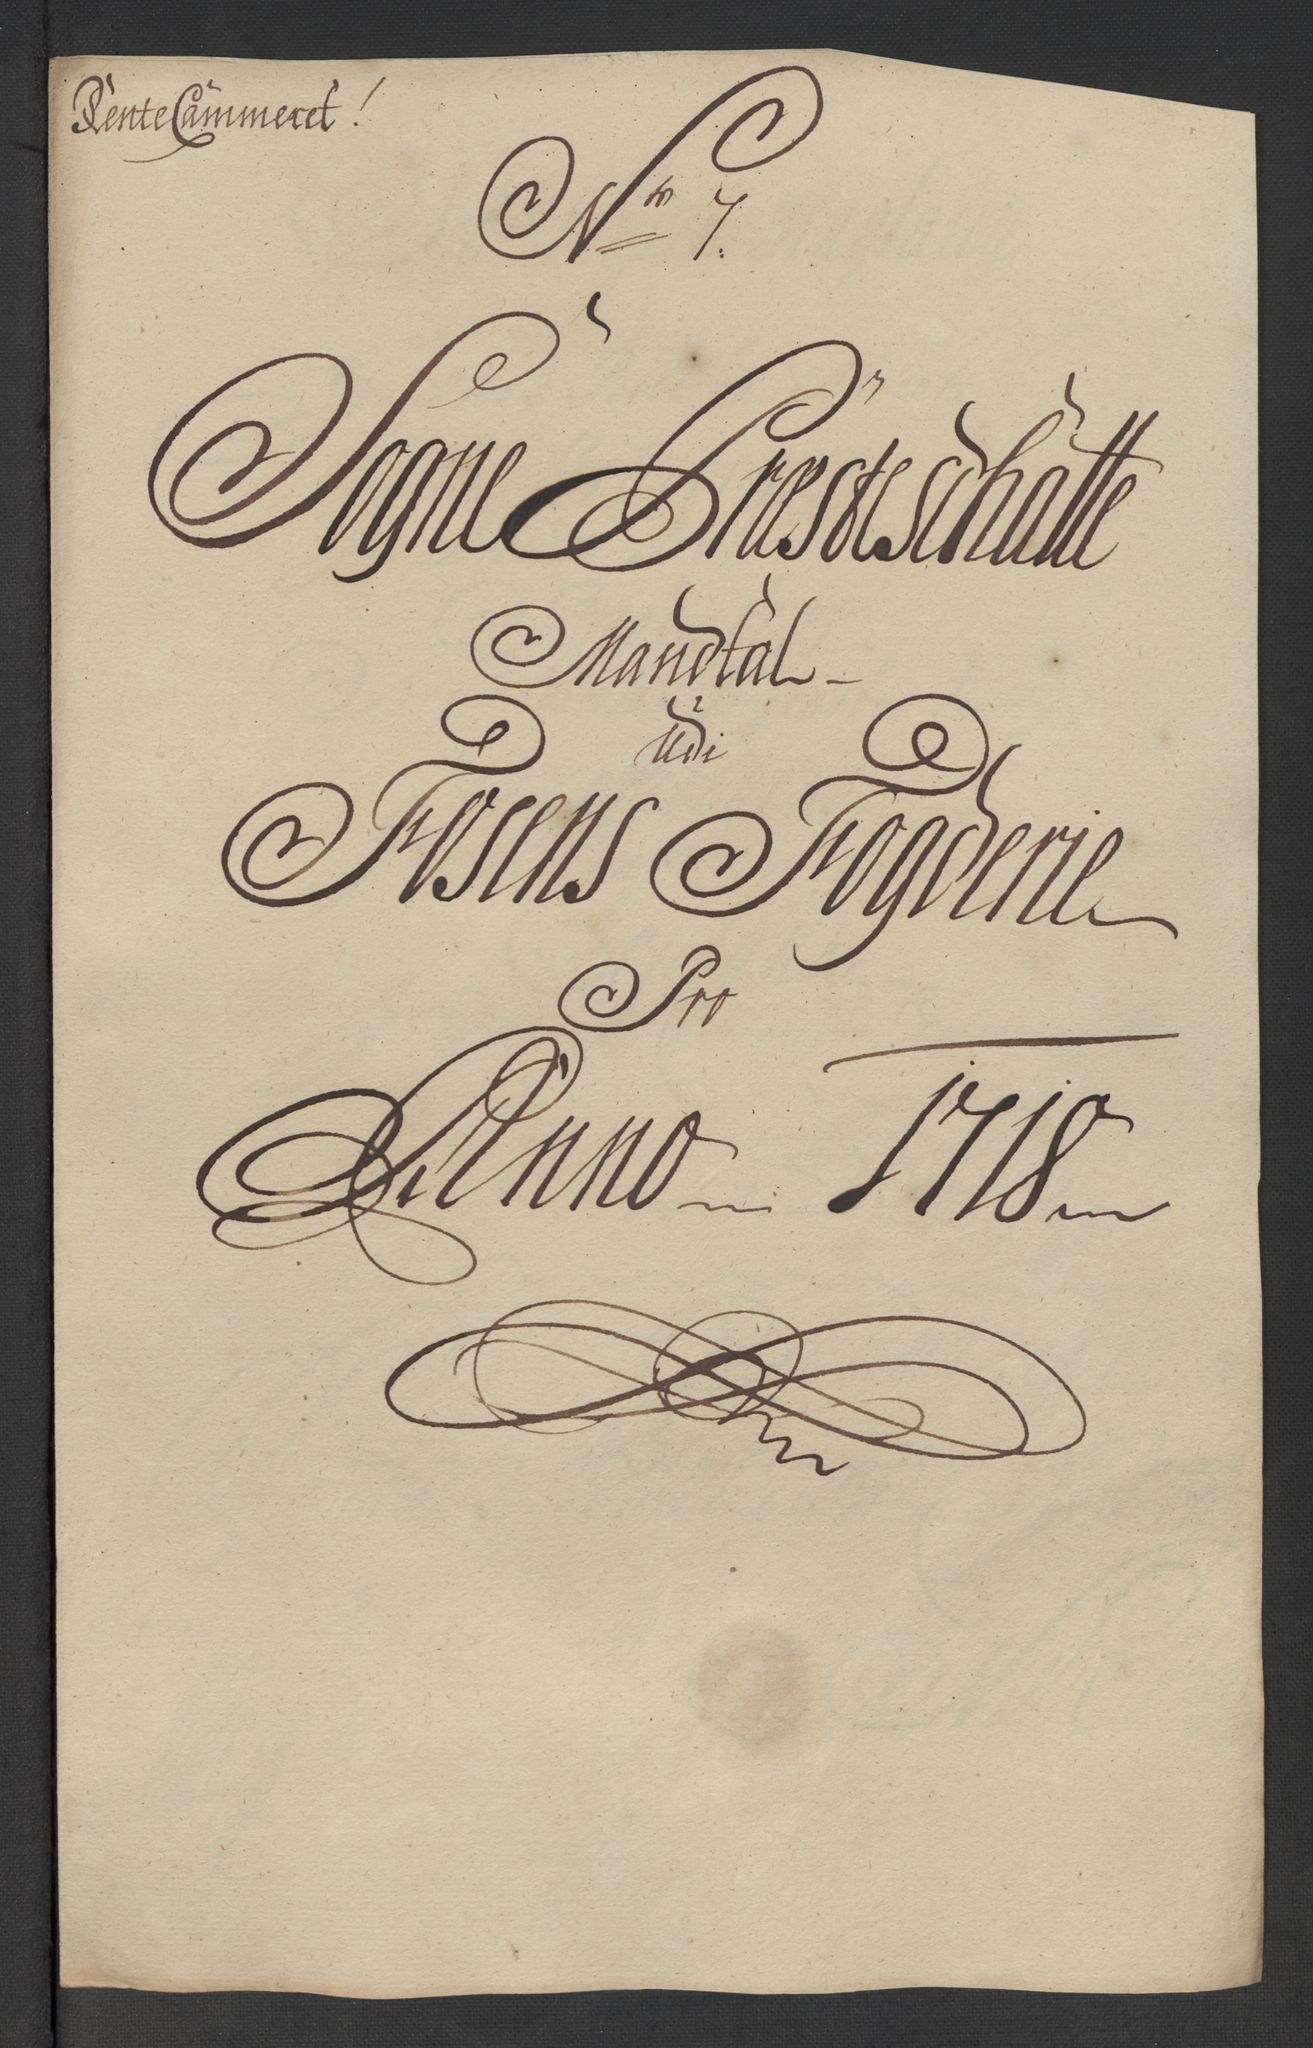 RenteCammeret!
No 7.
Sogne Præsteschatte
Mandtal
Udi
Fosens Fogderie
Pro
Anno 1718